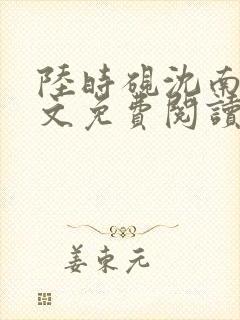 陸時硯沈南
文免費閱讀
姜東元